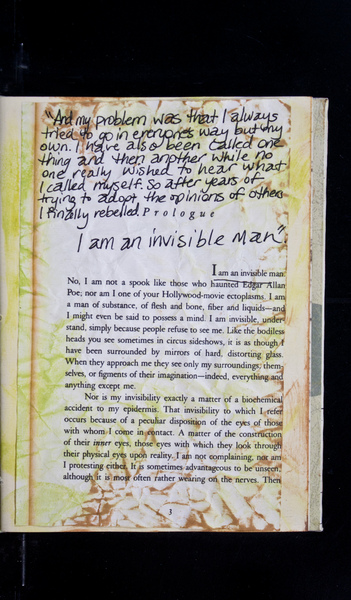 "And my problem was that I always
tried to go in everyone's way but my
own. I have also been called one
thing and then another while no
one really wished to hear what
I called myself. So after years of
trying to adopt the opinions of others
I finally rebelled. Prologue
I am an invisible man."
I am an invisible man.
No, I am not a spook like those who haunted Edgar Allan
Poe; nor am I one of your Hollywood-movie ectoplasms. I am
a man of substance, of flesh and bone, fiber and liquids—and
I might even be said to possess a mind. I am invisible, under-
stand, simply because people refuse to see me. Like the bodiless
heads you see sometimes in circus sideshows, it is as though I
have been surrounded by mirrors of hard, distorting glass.
When they approach me they see only my surroundings, them-
selves, or figments of their imagination—indeed, everything and
anything except me.
Nor is my invisibility exactly a matter of a biochemical
accident to my epidermis. That invisibility to which I refer
occurs because of a peculiar disposition of the eyes of those
with whom I come in contact. A matter of the construction
of their inner eyes, those eyes with which they look through
their physical eyes upon reality. I am not complaining, nor am
I protesting either. It is sometimes advantageous to be unseen,
although it is most often rather wearing on the nerves. Then
3